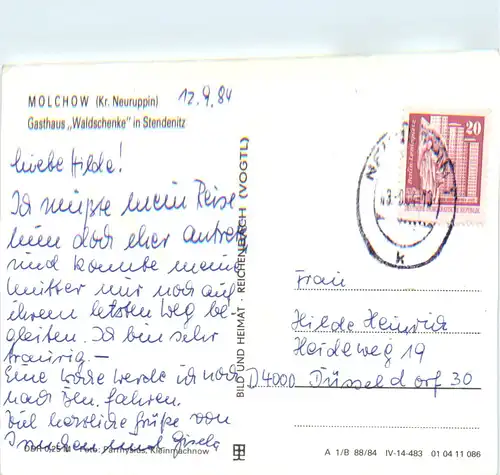 MOLCHOW (Kr. Neuruppin) 12.9.84
Gasthaus „Waldschenke" in Stendenitz
Liebe Hilde!
Ich mußte mein Reise
nun doch eher
und konnte meine
Mutter nur noch auf
ihrem letzten Weg be-
gleiten. Ich bin sehr
traurig. —
Eine Woche werde ich noch
nach fahren.
Viel herzliche Grüße von
und Gisela
DDR 0,25 M Foto: Kleinmachnow
BILD UND HEIMAT · REICHENBACH (VOGTL)
20
k
Frau
Hilde Heinrich
Heideweg 19
D4000 Düsseldorf 30
A 1/B 88/84 IV-14-483 01 04 11 086